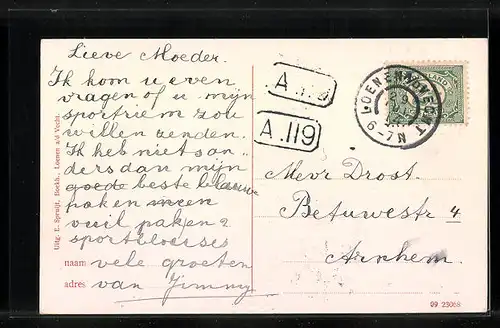 Lieve Moeder.
Ik kom u even
vragen of u mijn
sportriem zou
willen zenden.
Ik heb niet aan-
ders dan mijn
goede beste blauwe
haken
vuil pak en 2
sportbloeses
naam vele groeten
adres van Jimmy
Uitg. E. Spruijt, Boekh., Loenen a/d Vecht.
A.119
A.119
LOENEN A/D VECHT
6-7N
Mevr Drost.
Betuwestr 4
Arnhem.
99 23068